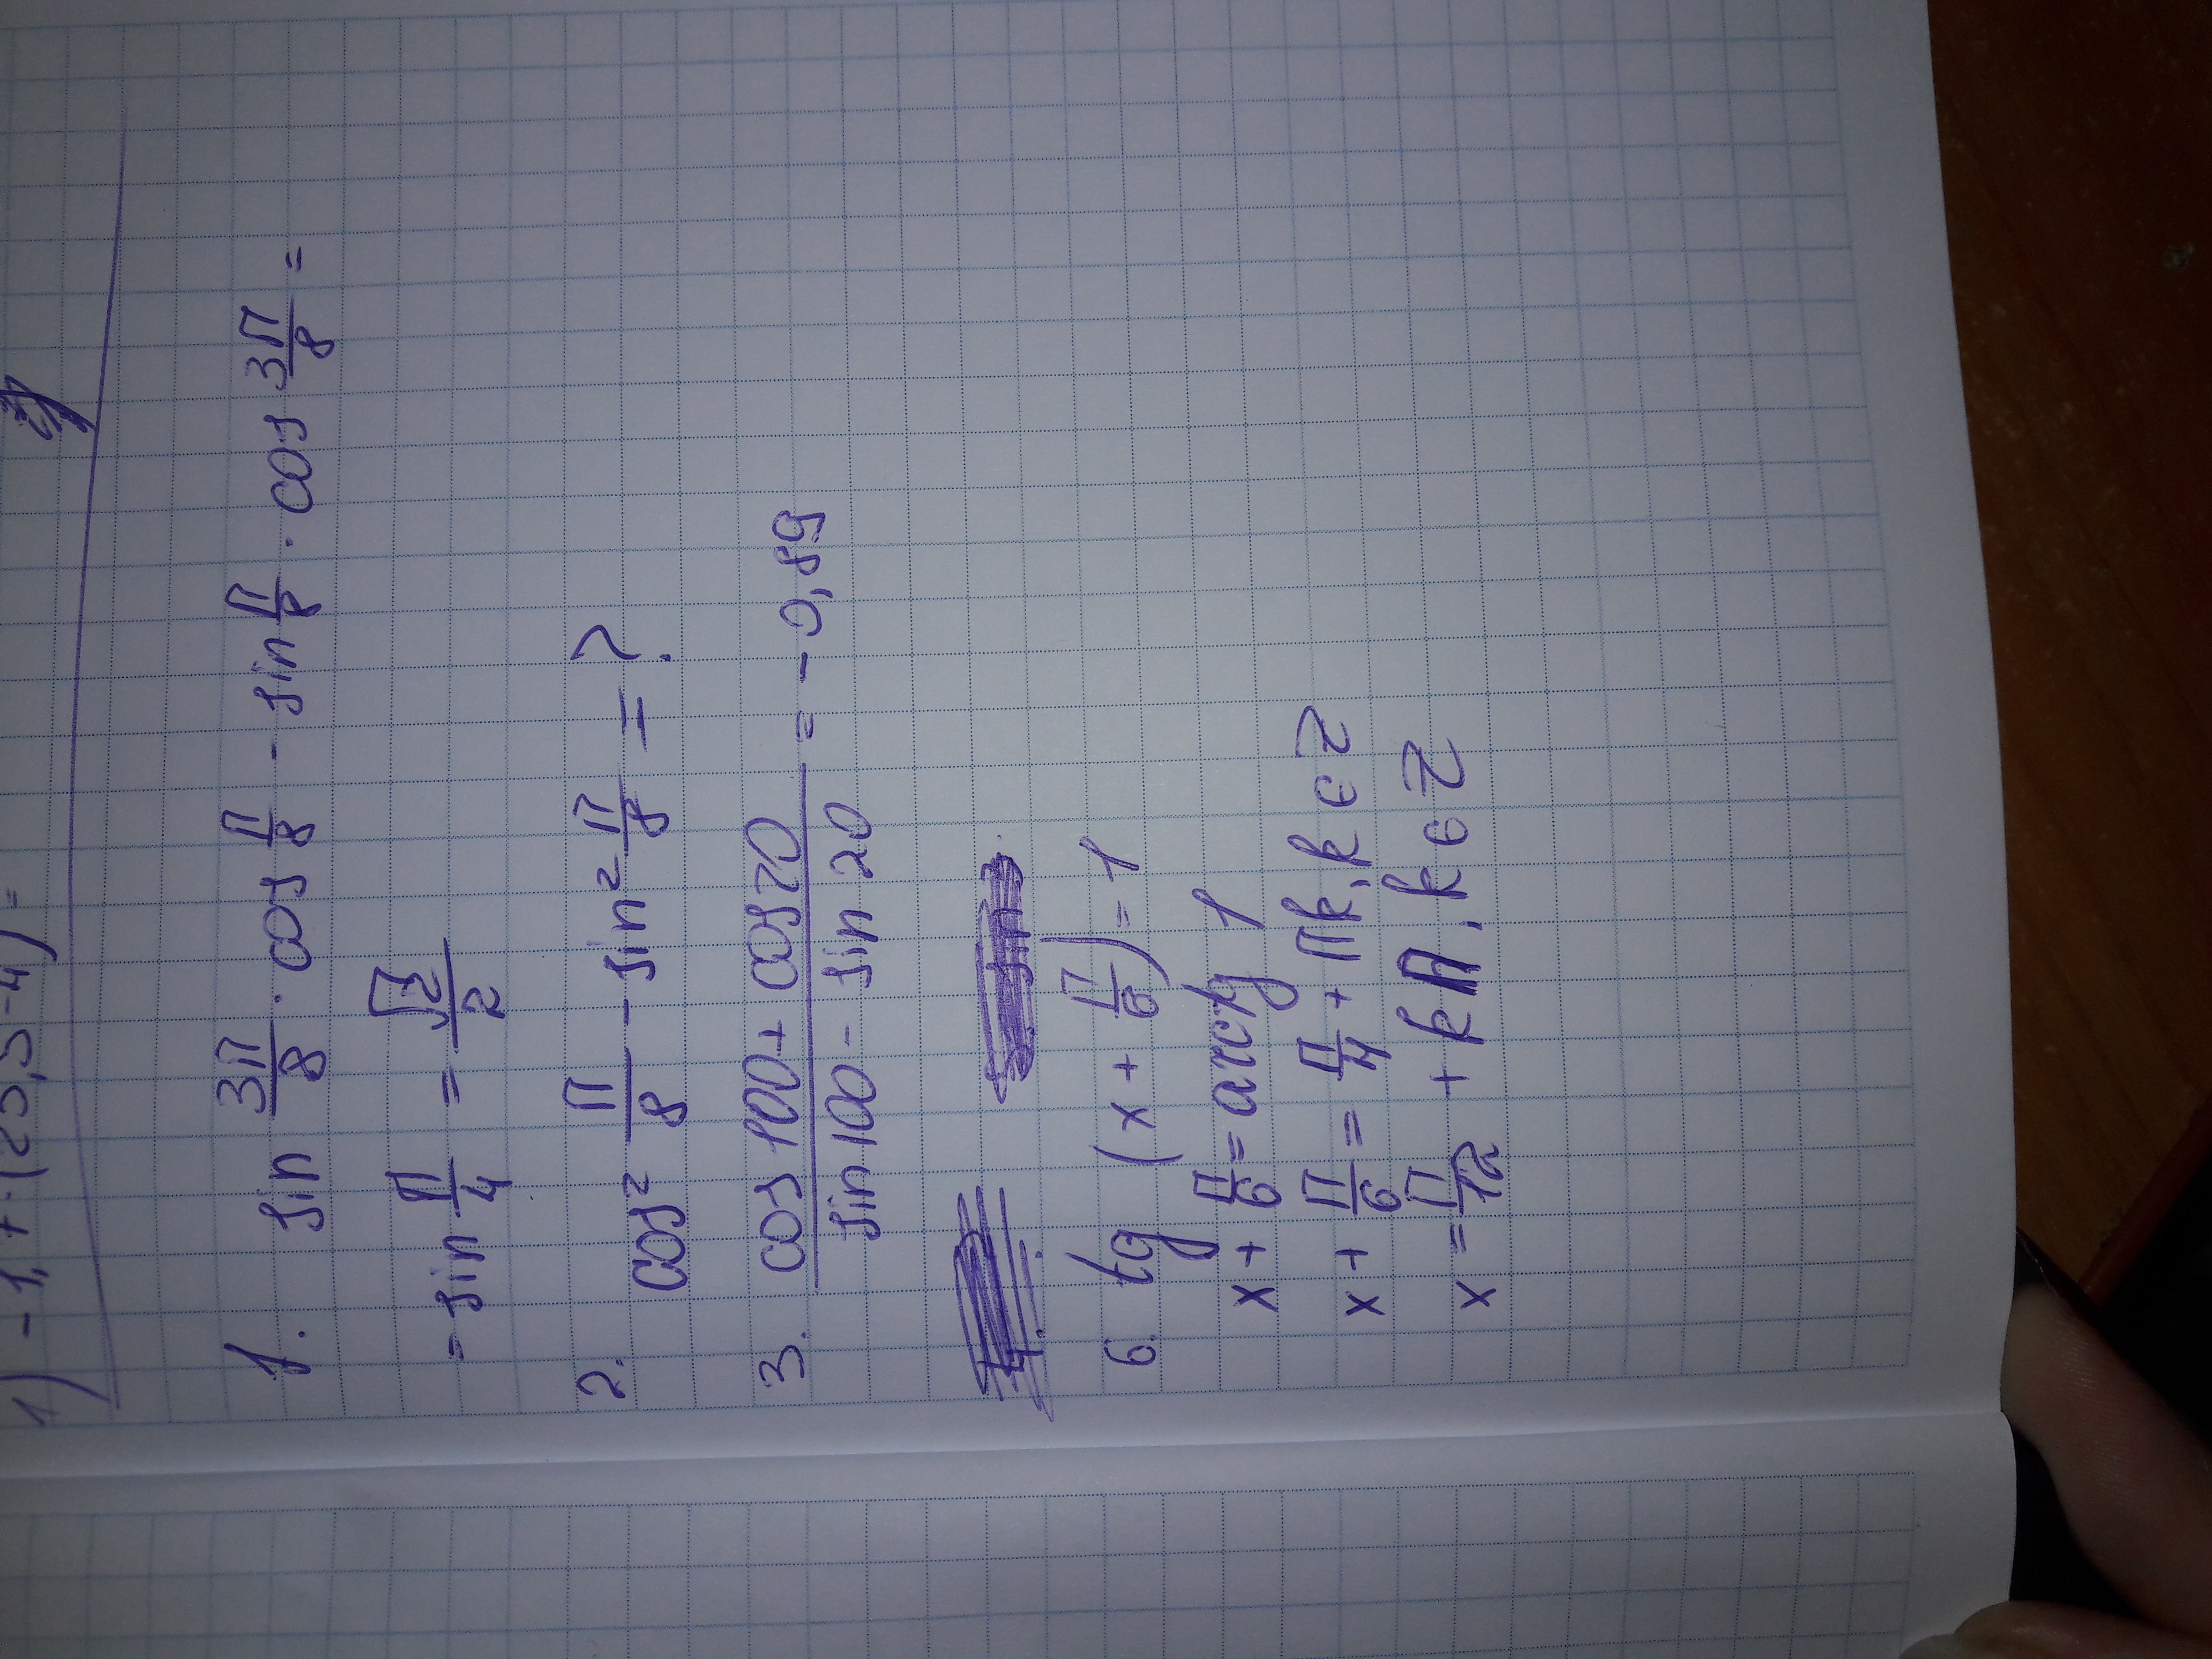 1) -1,7 · (23,5-4) =
1. sin 3π/8 · cos π/8 - sin π/8 · cos 3π/8 =
= sin π/4 = √2/2
2. cos² π/8 - sin² π/8 = ?
3. (cos 100 + cos 20)/(sin 100 - sin 20) = -0,89
6. tg (x + π/6) = 1
x + π/6 = arctg 1
x + π/6 = π/4 + πk, k ∈ Z
x = π/12 + kπ, k ∈ Z